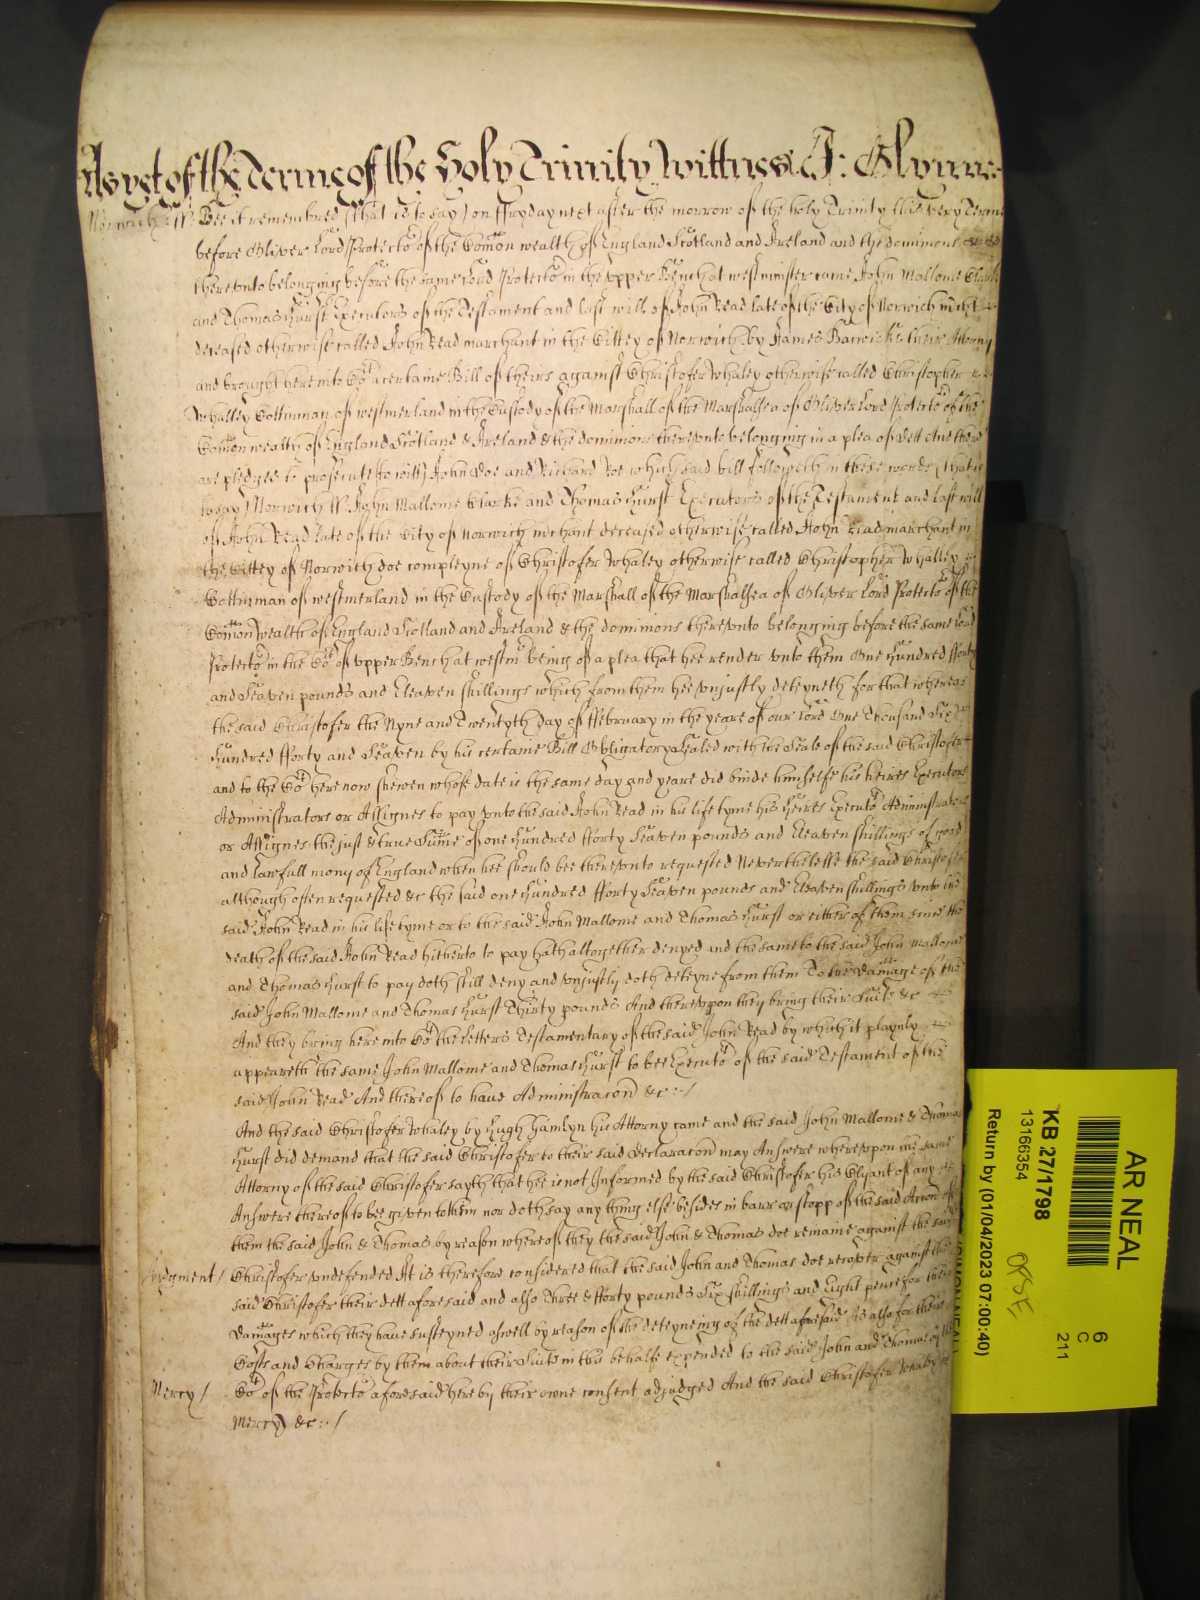 As yet of the Terme of the Holy Trinity Wittnes J: Glynne
Norwich ss Bee it remembred (that is to say) on ffryday next after the morrow of the holy Trinity this very Terme
before Oliver Lord Protector of the Comon wealth of England Scotland and Ireland and the dominions
thereunto belonging before the same Lord Protector in the upper Bench at westminster came John Mallome Clarke
and Thomas Hurst Executors of the Testament and last will of John Read late of the City of Norwich mcht
deceased otherwise called John Read marchant in the Cittey of Norwich by James Barwicke their Attorny
and brought here into Cot a certaine Bill of theirs against Christofer Whaley otherwise called Christopher
Whalley Cottinman of westmerland in the Custody of the Marshall of the Marshalsea of Oliver Lord Protector of the
Comon wealth of England Scotland & Ireland & the dominions thereunto belonging in a plea of dett And there
are pledges to prosecute (to witt) John Doe and Richard Roe which said bill followeth in these words (that is
to say) Norwich ss John Mallome Clarke and Thomas Hurst Executors of the Testament and last will
of John Read late of the City of Norwich mchant deceased otherwise called John Read marchant in
the Cittey of Norwich doe compleyne of Christofer Whaley otherwise called Christopher Whalley
Cottinman of westmerland in the Custody of the Marshall of the Marshalsea of Oliver Lord Protector of the
Comon wealth of England Scotland and Ireland & the dominions thereunto belonging before the same Lord
Protector in the Cot of upper Bench at westmr being of a plea that hee render unto them One hundred fforty
and Seaven pounds and Eleaven shillings which from them hee unjustly deteyneth for that whereas
the said Christofer the Nyne and Twentyth day of ffebruary in the yeare of our Lord One Thousand Six
hundred fforty and Seaven by his certaine Bill Obligatory Sealed with the Seale of the said Christofer
and to the Cot here now shewen whose date is the same day and yeare did binde himselfe his heires Executors
Administrators or Assignes to pay unto the said John Read in his life tyme his heires Executors Administrators
or Assignes the just & true Sume of one hundred fforty Seaven pounds and Eleaven shillings of good
and lawfull mony of England when hee should bee thereunto requested Neverthelesse the said Christofer
although often requested &c the said one hundred fforty Seaven pounds and Eleaven shillings unto the
said John Read in his life tyme or to the said John Mallome and Thomas Hurst or either of them since the
death of the said John Read hitherto to pay hath altogether denyed and the same to the said John Mallome
and Thomas Hurst to pay doth still deny and unjustly doth deteyne from them To the Damage of the
said John Mallome and Thomas Hurst Thirty pounds And thereupon they bring their Suite &c
And they bring here into Cot the letters Testamentary of the said John Read by which it playnly
appeareth the same John Mallome and Thomas Hurst to bee Executors of the said Testament of the
said John Read And thereof to have Administracon &c:-/
And the said Christofer Whaley by Hugh Hamlyn his Attorny came and the said John Mallome & Thomas
Hurst did demand that the said Christofer to their said Declaracon may Answere whereupon the same
Attorny of the said Christofer sayth that hee is not Informed by the said Christofer his Clyant of any
Answere thereof to bee given to them nor doth say any thing else besides in barr or stopp of the said Accon of
them the said John & Thomas by reason whereof they the said John & Thomas doe remaine against the said
Judgment/ Christofer undefended It is therefore considered that the said John and Thomas doe recover against the
said Christofer their dett aforesaid and also Three & fforty pounds Six shillings and Eight pence for their
Damages which they have susteyned aswell by reason of the deteyneing of the dett aforesaid As also for their
Costs and Charges by them about their Suite in this behalfe expended to the said John and Thomas by the
Mercy/ Cot of the Protector aforesaid here by their owne consent adjudged And the said Christofer Whaley in
Mercy &c:-/
AR NEAL
6
C
211
KB 27/1798
13166354
Return by (01/04/2023 07:00:40)